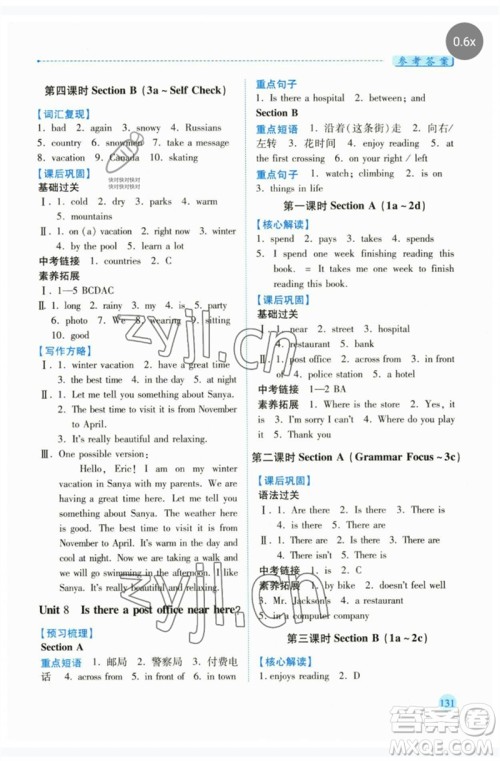 0.6x
参考答案
第四课时 Section B (3a ~ Self Check)
【词汇复现】
1. bad 2. again 3. snowy 4. Russians
5. country 6. snowman 7. sweet
8. vacation 9. Canada 10. skating
【课后巩固】
基础过关
Ⅰ. 1. cold 2. juice 3. hard 4. sweet
5. mountains
Ⅱ. 1. on (a) vacation 2. right now 3. write to
4. by the pool 5. learn a lot
中考链接 1. countries 2. C
素养拓展
Ⅰ. 1—5 BCDAC
Ⅱ. 1. long 2. rainy 3. have 4. party
5. 6. photo 7. We 8. wearing 9. sitting
10. good
【写作方略】
Ⅰ. 1. winter vacation 2. have a great time
3. the best time 4. in the day 5. at night
Ⅱ. 1. Let me tell you something about Sanya.
2. The best time to visit it is from November
to April.
3. It's really beautiful and relaxing.
Ⅲ. One possible version:
Hello, Eric! I am on my winter
vacation in Sanya with my parents. We are
having a great time here! Let me tell you
something about Sanya. The best time to
visit it is from November to April. The
weather here is not too cold or hot from
November to April. It's hot in the day, but
cool at night. Now we are taking a walk and
swimming in the afternoon. I am feeling
great! It's really beautiful and relaxing.
Unit 8 Is there a post office near here?
【预习梳理】
Section A
重点短语 1. 邮局 2. 警察局 3. 付费电
话 4. across from 5. next to 6. far from
重点句子
1. Is there a hospital 2. between; and
Section B
重点短语 1. 沿着(这条街)走 2. 向右/
左转 3. 花时间 4. enjoy reading 5. at
the first crossing 6. on the right of 7. on
重点句子 1. watch; climbing 2. if
3. things in life
第一课时 Section A (1a ~ 2d)
【核心解读】
1. spend 2. pays 3. takes 4. spends
5. I spend one week finishing reading this
book. = It takes me one week to finish
reading this book.
【课后巩固】
基础过关
Ⅰ. 1. near 2. street 3. post
4. hospital 5. bank
Ⅱ. 1. post office 2. in front of 3. is behind
4. is between; and 5. across from
中考链接 1—2 BA
素养拓展 1. Where is the store 2. Yes, it
is 3. I'm sorry I can't 4. Thank you
5. You are welcome
第二课时 Section A (Grammar Focus ~ 3c)
【课后巩固】
语法过关
Ⅰ. 1. Are there 2. Is there 3. There is
4. There are 5. There is
中考链接 1. is
素养拓展 1. by bike 2. doesn't have a bike
3. Mr. Jackson's 4. is a restaurant
5. in a computer company
第三课时 Section B (1a ~ 2c)
【核心解读】
1. enjoys reading 2. D
131
zyjl.cn
zyjl.cn